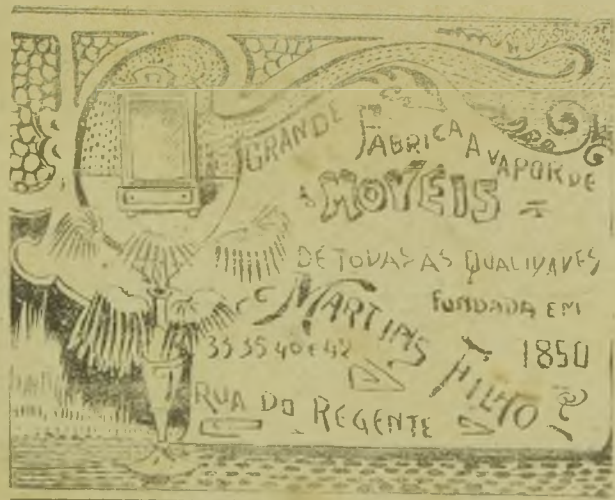 GRANDE FABRICA A VAPOR DE
MOVEIS
DE TODAS AS QUALIDADES
MARTINS FILHO
FUNDADA EM
1850
33 35 40 e 42
RUA DO REGENTE